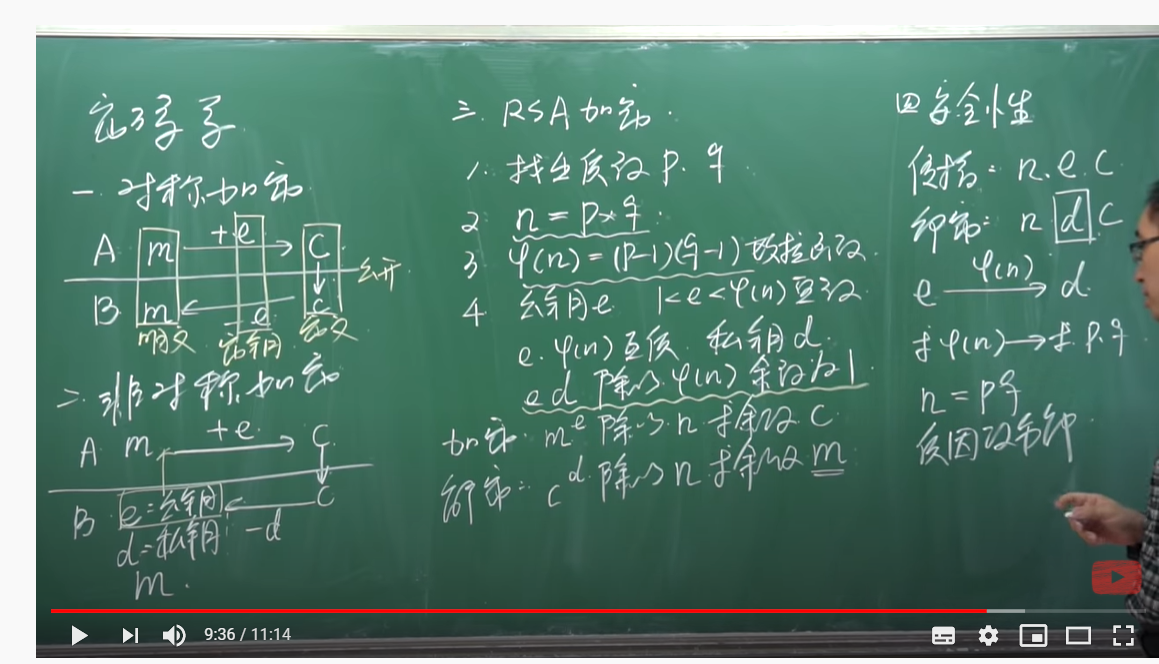 密码学
一. 对称加密
A m +e C
公开
B m e c
明文 密钥 密文
二. 非对称加密
A m +e. C
B e=公钥 -d C
d=私钥
m.
三. RSA加密.
1. 找2质数 p. q
2 n=p×q
3 φ(n)=(p-1)(q-1) 欧拉函数.
4 公钥e 1<e<φ(n) 整数
e. φ(n)互质. 私钥d.
ed 除以φ(n) 余数为1.
加密: mᵉ 除以n 求余数 C
解密: cᵈ 除以n 求余数 m
四 安全性
传播: n. e. C
解密: n d C
e φ(n) d
求φ(n)→求 p.q
n=pq
质因数分解
9:36 / 11:14